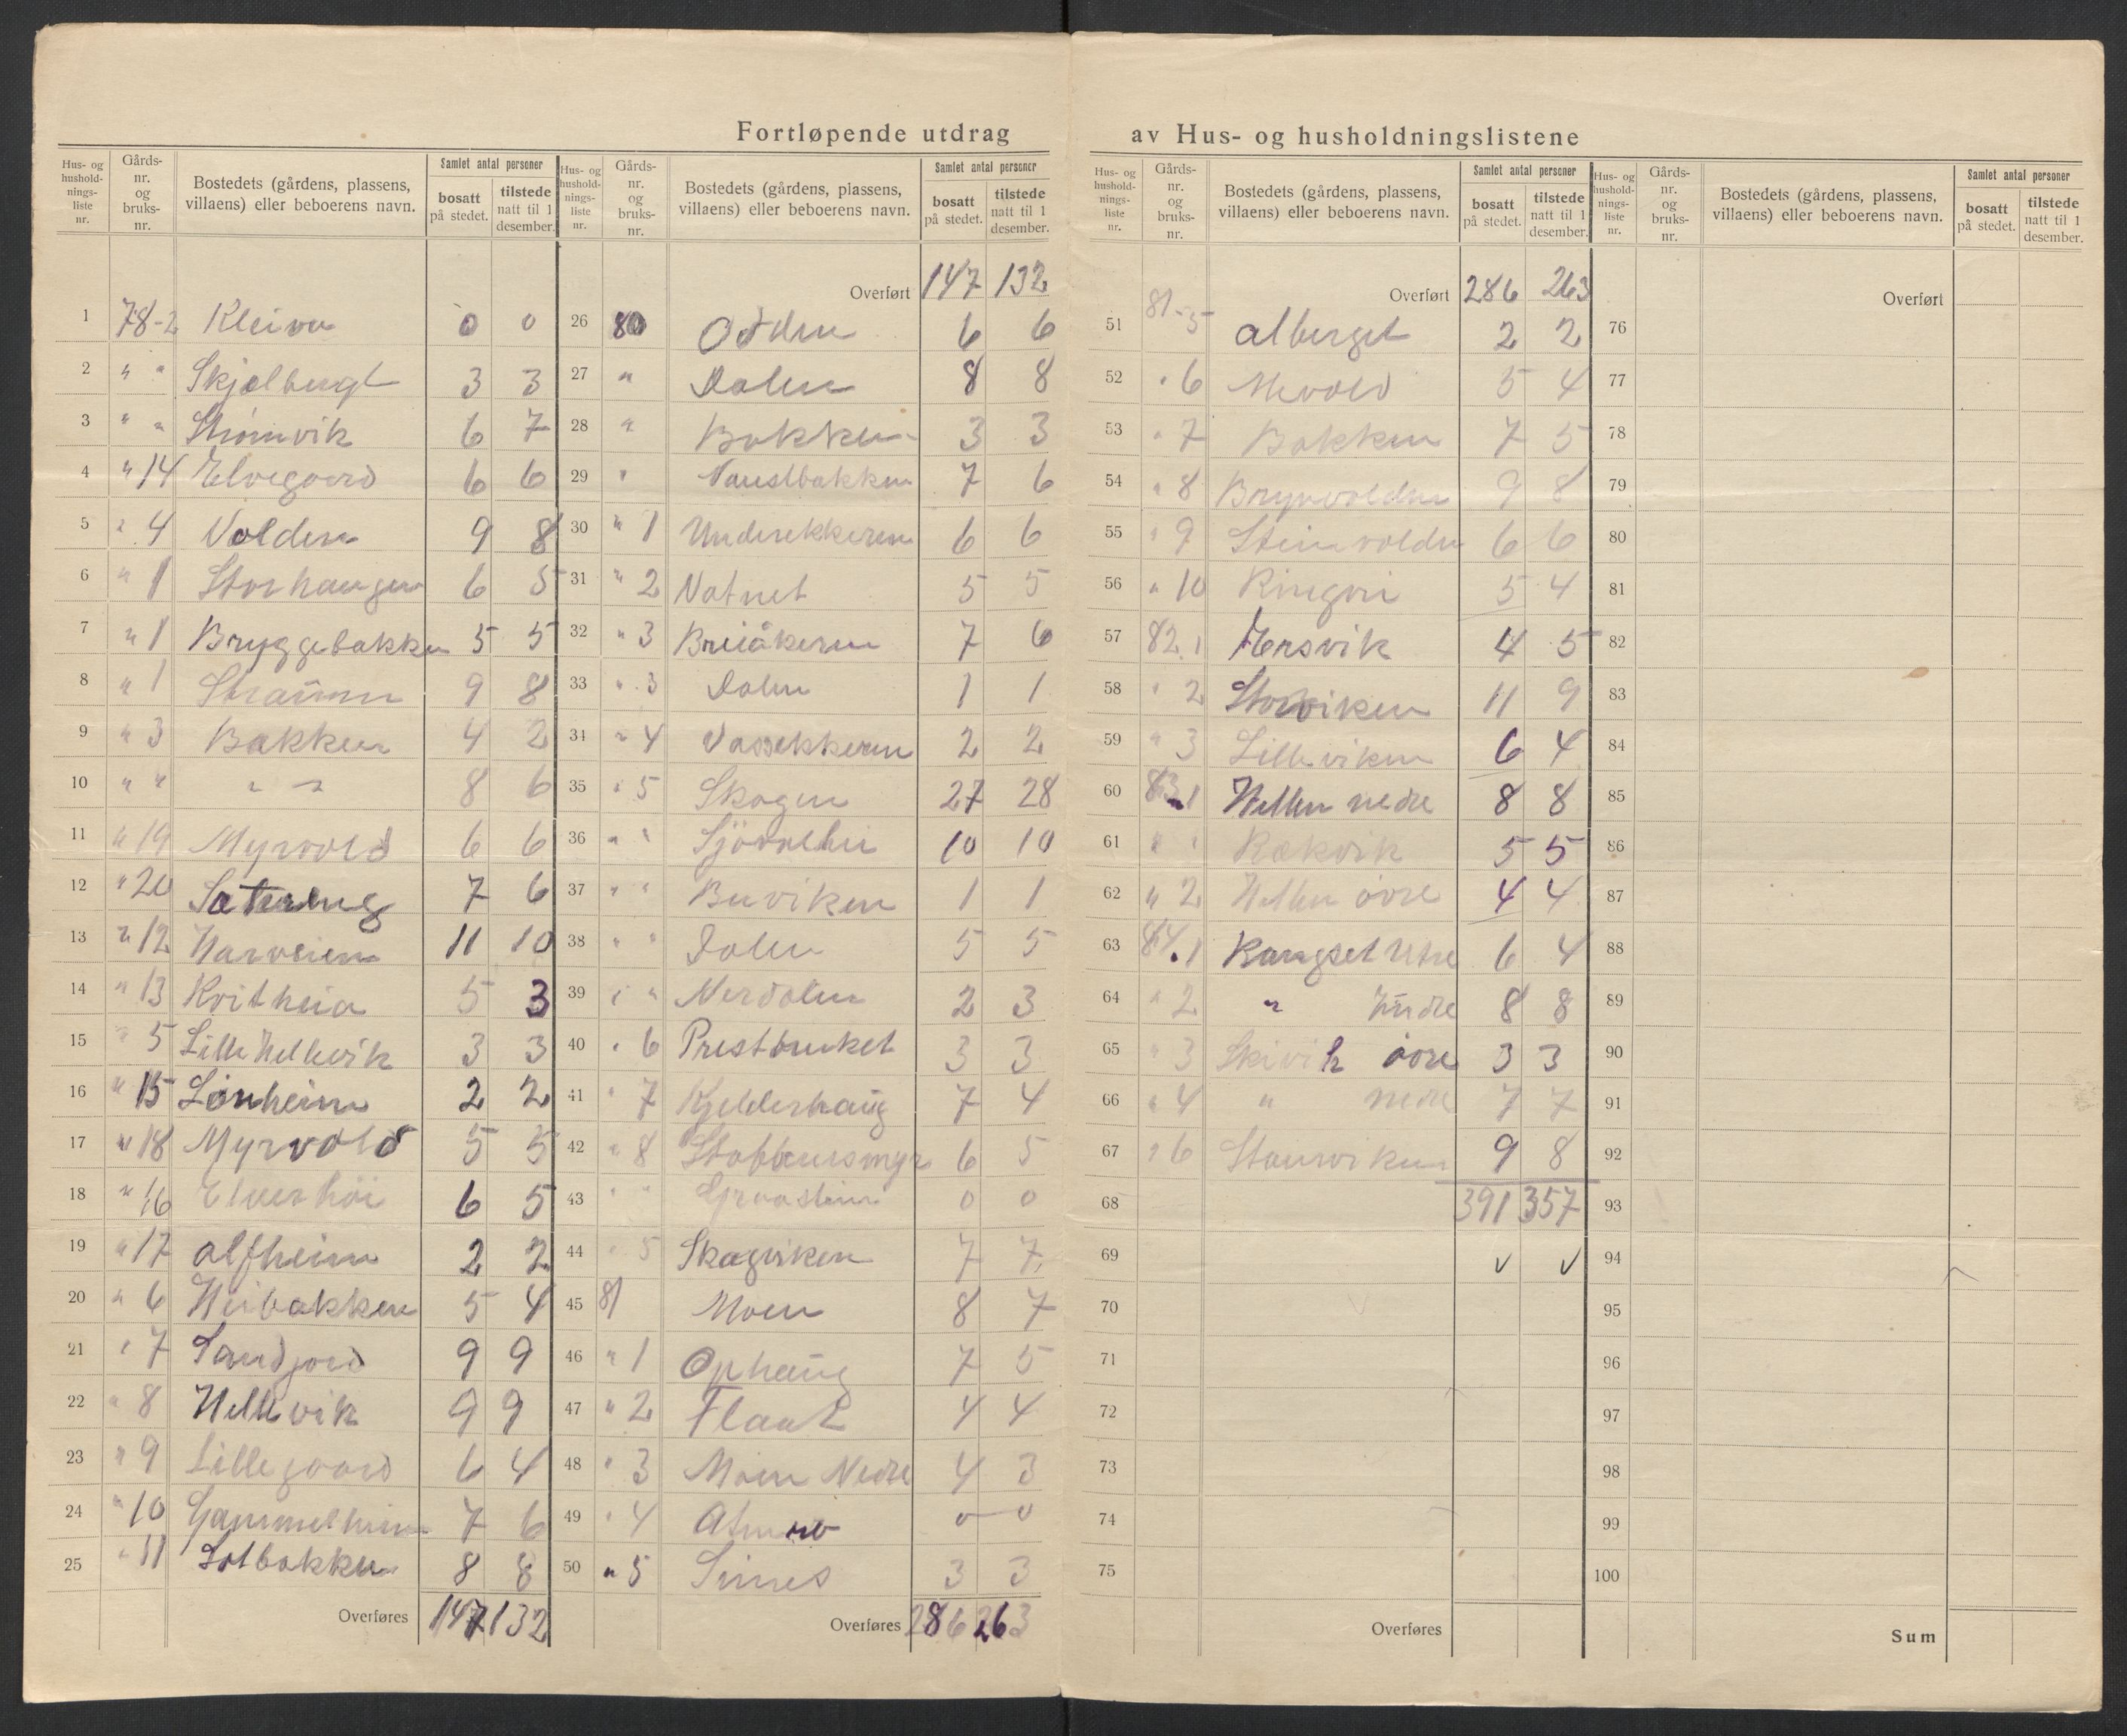 Fortløpende utdrag av Hus- og husholdningslistene
Hus- og husholdnings-liste nr. | Gårds-nr. og bruks-nr. | Bostedets (gårdens, plassens, villaens) eller beboerens navn. | Samlet antal personer | bosatt på stedet. | tilstede natt til 1 desember.
1 78-2 Kleiva 0 0
2 " " Skjelbergt 3 3
3 " " Strømvik 6 7
4 " 14 Elvegaard 6 6
5 " 4 Volden 9 8
6 " 1 Storhaugen 6 5
7 " 1 Bryggebakken 5 5
8 " 1 9 8
9 " 3 Bakken 4 2
10 " " " " 8 6
11 " 19 Myrvold 6 6
12 " 20 7 6
13 " 12 11 10
14 " 13 Kvitheia 5 3
15 " 5 Lille Hellevik 3 3
16 " 15 2 2
17 " 18 Myrvold 5 5
18 " 16 Elverhöi 6 5
19 " 17 Alfheim 2 2
20 " 6 5 4
21 " 7 Sandjord 9 9
22 " 8 Hellevik 9 9
23 " 9 Lillegaard 6 4
24 " 10 Gammelheim 7 6
25 " 11 8 8
Overføres 147 132
Hus- og husholdnings-liste nr. | Gårds-nr. og bruks-nr. | Bostedets (gårdens, plassens, villaens) eller beboerens navn. | Samlet antal personer | bosatt på stedet. | tilstede natt til 1 desember.
Overført 147 132
26 80 Odden 6 6
27 " Dalen 8 8
28 " Bakken 3 3
29 " Naustbakken 7 6
30 " 1 Underekkeren 6 6
31 " 2 Vatnet 5 5
32 " 3 Breiåkeren 7 6
33 " 3 Dalen 1 1
34 " 4 Vassekkeren 2 2
35 " 5 Skogen 27 28
36 " " 10 10
37 " " Buviken 1 1
38 " " Dalen 5 5
39 " " Nerdalen 2 3
40 " 6 Prestbruket 3 3
41 " 7 Kjelderhaug 7 4
42 " 8 6 5
43 " " 0 0
44 " 5 Skagviken 7 7
45 81 Moen 8 7
46 " 1 Ophaug 7 5
47 " 2 Flaat 4 4
48 " 3 Moen Nedre 4 3
49 " 4 0 0
50 " 5 Simes 3 3
Overføres 286 263
Hus- og husholdnings-liste nr. | Gårds-nr. og bruks-nr. | Bostedets (gårdens, plassens, villaens) eller beboerens navn. | Samlet antal personer | bosatt på stedet. | tilstede natt til 1 desember.
Overført 286 263
51 81-5 Alberget 2 2
52 " 6 Mevold 5 4
53 " 7 Bakken 7 5
54 " 8 9 8
55 " 9 Steinvolden 6 6
56 " 10 Ringvei 5 4
57 82.1 Hersvik 4 5
58 " 2 Storviken 11 9
59 " 3 Lilleviken 6 4
60 83.1 Hellen nedre 8 8
61 " " Rækvik 5 5
62 " 2 Hellen øvre 4 4
63 84.1 Rangset Ytre 6 4
64 " 2 " Indre 8 8
65 " 3 Skivik øvre 3 3
66 " 4 " nedre 7 7
67 " 6 9 8
68 391 357
69 v v
70
71
72
73
74
75
Overføres
Hus- og husholdnings-liste nr. | Gårds-nr. og bruks-nr. | Bostedets (gårdens, plassens, villaens) eller beboerens navn. | Samlet antal personer | bosatt på stedet. | tilstede natt til 1 desember.
Overført
76
77
78
79
80
81
82
83
84
85
86
87
88
89
90
91
92
93
94
95
96
97
98
99
100
Sum